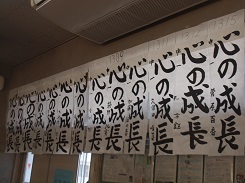 心の成長
心の成長
心の成長
心の成長
心の成長
心の成長
心の成長
心の成長
心の成長
心の成長
心の成長